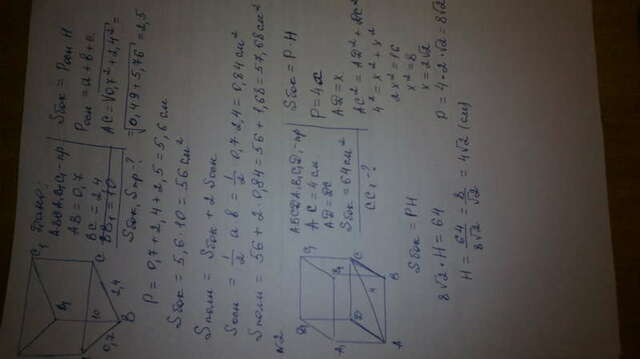 Дано:
ABCA₁B₁C₁ - пр
AB = 0,7
BC = 2,4
BB₁ = 10
Sбок, Sпр - ?
Sбок = Pосн H
Pосн = a + b + c
AC = √0,7² + 2,4² =
= √0,49 + 5,76 = 2,5
C₁
B₁
C
B
10
2,4
0,7
P = 0,7 + 2,4 + 2,5 = 5,6 см
Sбок = 5,6 · 10 = 56 см²
Sполн = Sбок + 2 Sосн
Sосн = 1/2 a b = 1/2 0,7 · 2,4 = 0,84 см²
Sполн = 56 + 2 · 0,84 = 56 + 1,68 = 57,68 см²
№2
ABCDA₁B₁C₁D₁ - пр
AC = 4 см
Sбок = 64 см²
CC₁ - ?
Sбок = P · H
AD = x
AC² = AD² + DC²
4² = x² + x²
2x² = 16
x² = 8
x = 2√2
P = 4 · 2 · √2 = 8√2
B₁
A₁
D
C
4
A
B
Sбок = PH
8√2 · H = 64
H = 64/8√2 = 8/√2 = 4√2 (см)